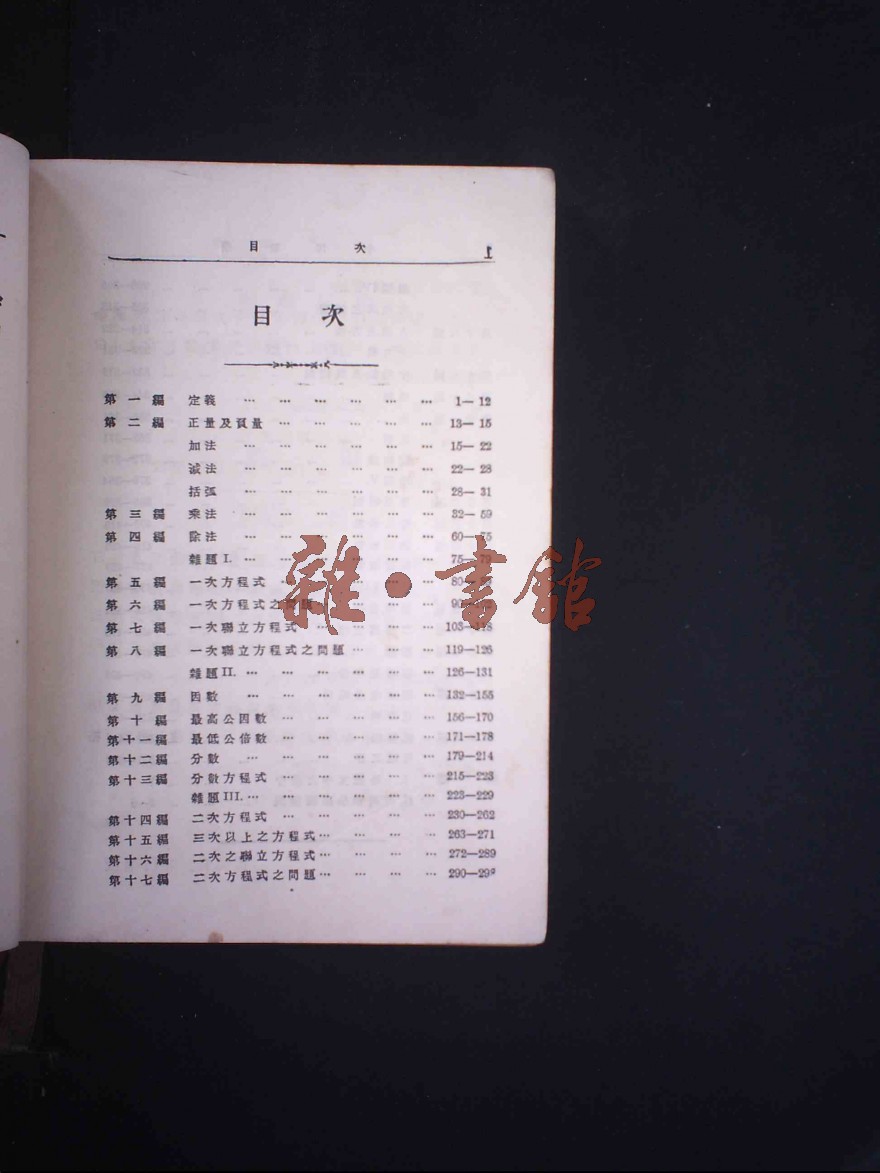 目 次 1
目 次
第一編 定義 … … … … … … 1—12
第二編 正量及負量 … … … … … 13—15
加法 … … … … … … 15—22
減法 … … … … … … 22—28
括弧 … … … … … … 28—31
第三編 乘法 … … … … … … 32—59
第四編 除法 … … … … … … 60—75
雜題 I. … … … … … … 75—
第五編 一次方程式 … … … … … 80—
第六編 一次方程式之問題 … … … …
第七編 一次聯立方程式 … … … … 103—118
第八編 一次聯立方程式之問題 … … … 119—126
雜題 II. … … … … … … 126—131
第九編 因數 … … … … … … 132—155
第十編 最高公因數 … … … … … 156—170
第十一編 最低公倍數 … … … … … 171—178
第十二編 分數 … … … … … … 179—214
第十三編 分數方程式 … … … … … 215—223
雜題 III. … … … … … … 223—229
第十四編 二次方程式 … … … … … 230—262
第十五編 三次以上之方程式 … … … … 263—271
第十六編 二次之聯立方程式 … … … … 272—289
第十七編 二次方程式之問題 … … … … 290—29
雜·書館